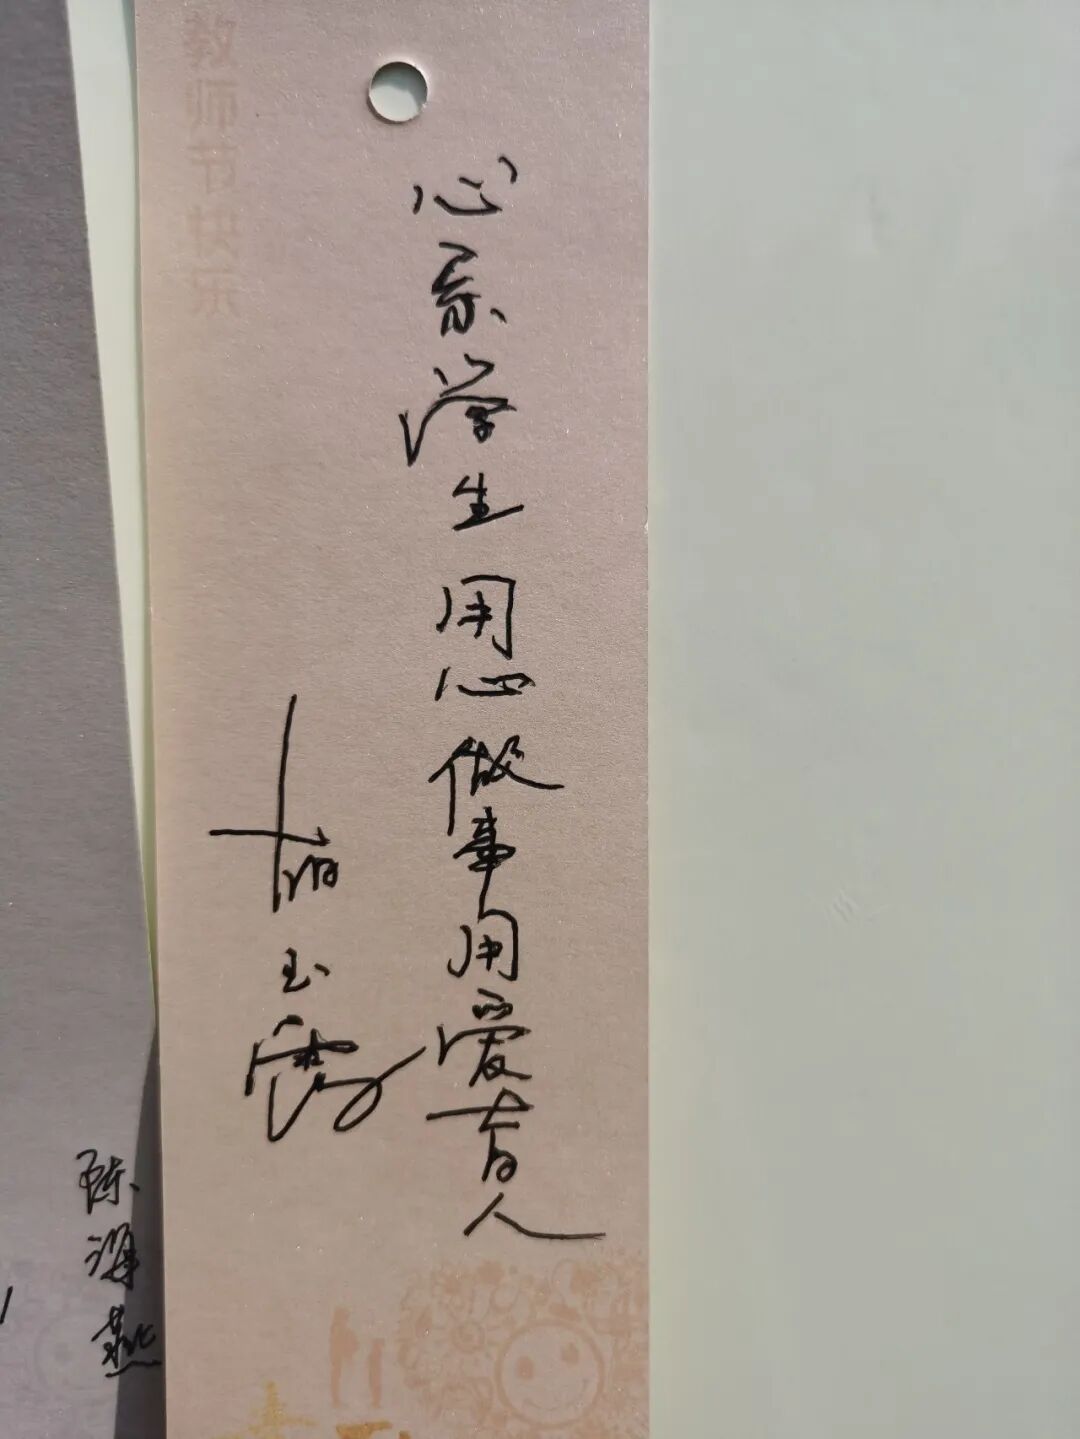 教师节快乐
心系学生用心做事用爱育人
玉
陈海燕